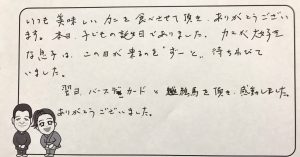 いつも美味しいカニを食べさせて頂き、ありがとうござい
ます。本日、子どもの誕生日でありました。カニが大好き
な息子は、この日が来るのを"ずーと"待ちわびて
いました。
翌日、バースデーカードと 馬を頂き、感動しました。
ありがとうございました。